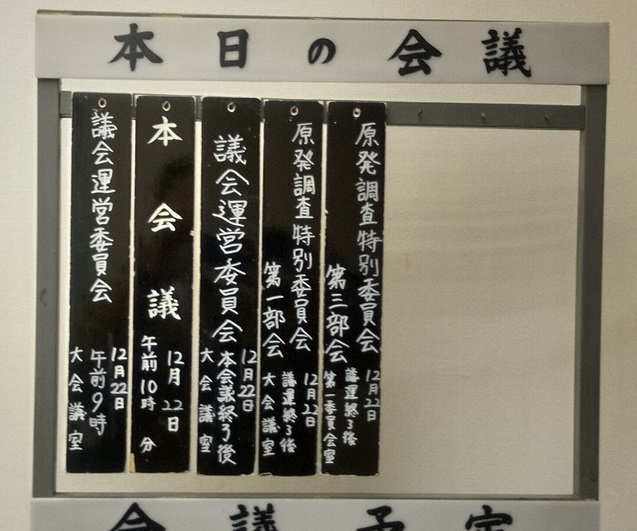 本日の会議
原発調査特別委員会
第三部会
12月22日
議運終了後
第一委員会室
原発調査特別委員会
第一部会
12月22日
議運終了後
大会議室
議会運営委員会
12月22日
本会議終了後
大会議室
本会議
12月22日
午前10時 分
議会運営委員会
12月22日
午前9時
大会議室
会議予定